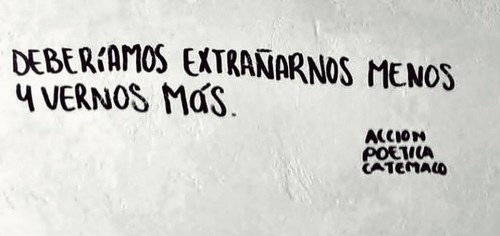 DEBERíAMOS EXTRAÑARNOS MENOS
Y VERNOS Más.
ACCION
POETICA
CATEMACO